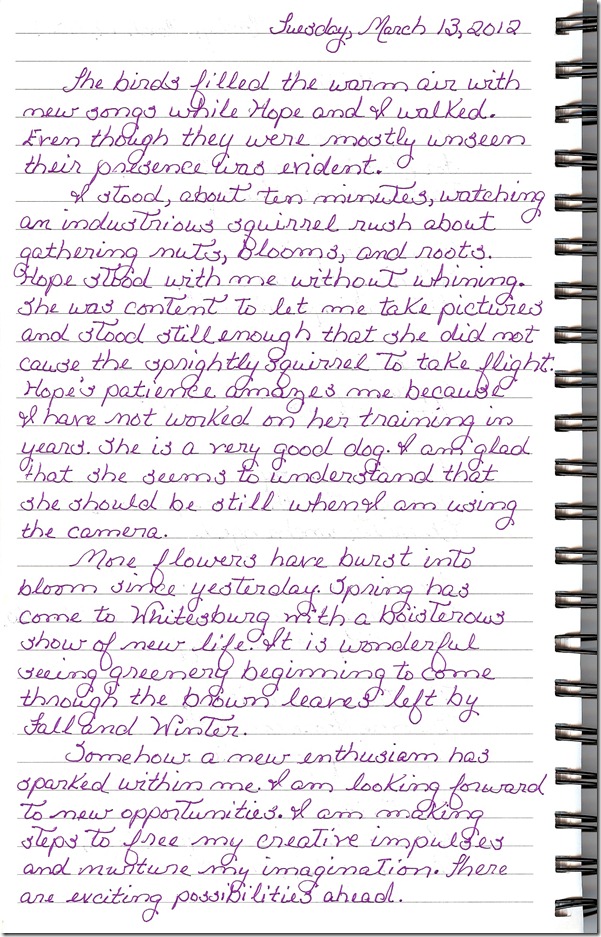 Tuesday, March 13, 2012
The birds filled the warm air with
new songs while Hope and I walked.
Even though they were mostly unseen
their presence was evident.
I stood, about ten minutes, watching
an industrious squirrel rush about
gathering nuts, blooms, and roots.
Hope stood with me without whining.
She was content to let me take pictures
and stood still enough that she did not
cause the sprightly squirrel to take flight.
Hope's patience amazes me because
I have not worked on her training in
years. She is a very good dog. I am glad
that she seems to understand that
she should be still when I am using
the camera.
More flowers have burst into
bloom since yesterday. Spring has
come to Whitesburg with a boisterous
show of new life. It is wonderful
seeing greenery beginning to come
through the brown leaves left by
Fall and Winter.
Somehow a new enthusiasm has
sparked within me. I am looking forward
to new opportunities. I am making
steps to free my creative impulses
and nurture my imagination. There
are exciting possibilities ahead.